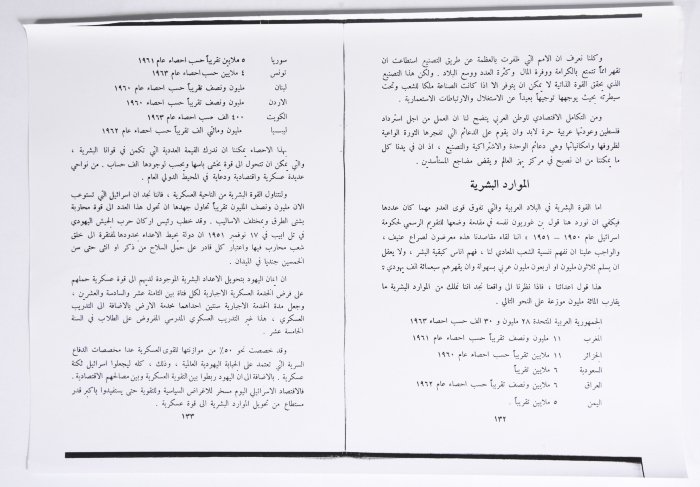 وكلنا نعرف ان الامم التي ظفرت بالعظمة عن طريق التصنيع استطاعت ان
تقهر انما تتمتع بالكرامة ووفرة المال وكثرة العدد ووسع البلاد . ولكن هذا التصنيع
الذي يحقق القوة الذاتية لا يمكن ان يتوفر الا اذا كانت الصناعة ملكا للشعب وتحت
سيطرته بحيث يوجهها توجيهاً بعيداً عن الاستغلال والارتباطات الاستعمارية .
ومن التكامل الاقتصادي للوطن العربي يتضح لنا ان العمل من اجل استرداد
فلسطين وعودتها عربية حرة لابد وان يقوم على الدعائم التي تفجرها الثورة الواعية
لظروفها وامكانياتها وهي دعائم الوحدة والاشتراكية والتصنيع ، اذ ان في يدنا كل
ما يمكننا من ان نصبح في مركز يهز العالم ويقض مضاجع المستأسدين .
الموارد البشرية
اما القوة البشرية في البلاد العربية والتي تفوق قوى العدو مهما كان عددها
فيكفي ان نورد هنا قول بن غوريون نفسه في مقدمة وضعها للتقويم الرسمي لحكومة
اسرائيل عام ١٩٥٠ – ١٩٥١ « اننا لقاء مقاصدنا هذه معرضون لصراع عنيف ،
والواجب علينا ان نفهم نفسية الشعب المعادي لنا ، فهم الناس كبقية البشر ، ولا يعقل
ان يسلم ثلاثون مليون او اربعون مليون عربي بسهولة وان يقهرهم سبعمائة الف يهودي »
هذا قول اعدائنا ، فاذا نظرنا الى واقعنا نجد اننا نملك من الموارد البشرية ما
يقارب المائة مليون موزعة على النحو التالي .
الجمهورية العربية المتحدة ٢٨ مليون و ٣٠ الف حسب احصاء ١٩٦٣
المغرب ١١ مليون ونصف تقريباً حسب احصاء عام ١٩٦١
الجزائر ١١ مليون تقريباً حسب احصاء ١٩٦٠
السعودية ٦ ملايين تقريباً
العراق ٦ ملايين ونصف تقريباً حسب احصاء عام ١٩٦٢
اليمن ٥ ملايين تقريباً .
١٣٢
سوريا ٥ ملايين تقريباً حسب احصاء عام ١٩٦١
تونس ٤ ملايين حسب احصاء عام ١٩٦٣
لبنان مليون ونصف تقريباً حسب احصاء عام ١٩٦٠
الاردن مليون ونصف تقريباً حسب احصاء ١٩٦٠
الكويت ٤٠٠ الف حسب احصاء عام ١٩٦٣
ليبيا مليون ومائتي الف تقريباً حسب احصاء عام ١٩٦٢
بهذا الاحصاء يمكننا ان ندرك القيمة العددية التي تكمن في قوانا البشرية ،
والتي يمكن ان تتحول الى قوة يخشى باسها ويحسب لوجودها الف حساب . من نواحي
عديدة عسكرية واقتصادية ودعاية في المحيط الدولي العام .
ولنتناول القوة البشرية من الناحية العسكرية ، فاننا نجد ان اسرائيل التي تستوعب
الان مليون ونصف المليون تقريباً تحاول جهدها ان تحول هذا العدد الى قوة محاربة
بشتى الطرق وبمختلف الاساليب . وقد خطب رئيس اركان حرب الجيش اليهودي
في تل ابيب في ١٧ نوفمبر ١٩٥١ ان دولة يحيط الاعداء بحدودها لمفتقرة الى خلق
شعب محارب فيها واعتبار كل قادر على حمل السلاح من ذكر او انثى حتى سن
الخمسين جنديا في الميدان .
ان ايمان اليهود بتحويل الاعداد البشرية الموجودة لديهم الى قوة عسكرية حملهم
على فرض الخدمة العسكرية الاجبارية لكل فتاة بين الثامنة عشر والسادسة والعشرين ،
وجعل مدة الخدمة الاجبارية سنتين احداهما بخدمة الارض بالاضافة الى التدريب
العسكري ، هذا غير التدريب العسكري المدرسي المفروض على الطلاب في السنة
الخامسة عشر .
وقد خصصت نحو ٥٠٪ من موازنتها للقوى العسكرية عدا مخصصات الدفاع
السرية التي تعتمد على الجباية اليهودية العالمية ، وذلك ، كله ليجعلوا اسرائيل ثكنة
عسكرية . بالاضافة الى ان اليهود ربطوا بين التقوية العسكرية وبين مصالحهم الاقتصادية .
فالاقتصاد الاسرائيلي اليوم مسخر للاغراض السياسية وللتقوية حتى يستفيدوا باكبر قدر
مستطاع من تحويل الموارد البشرية الى قوة عسكرية .
١٣٣